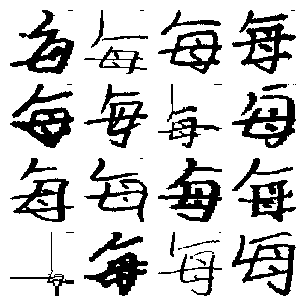 每每每每
每每每每
每每每每
每每每每